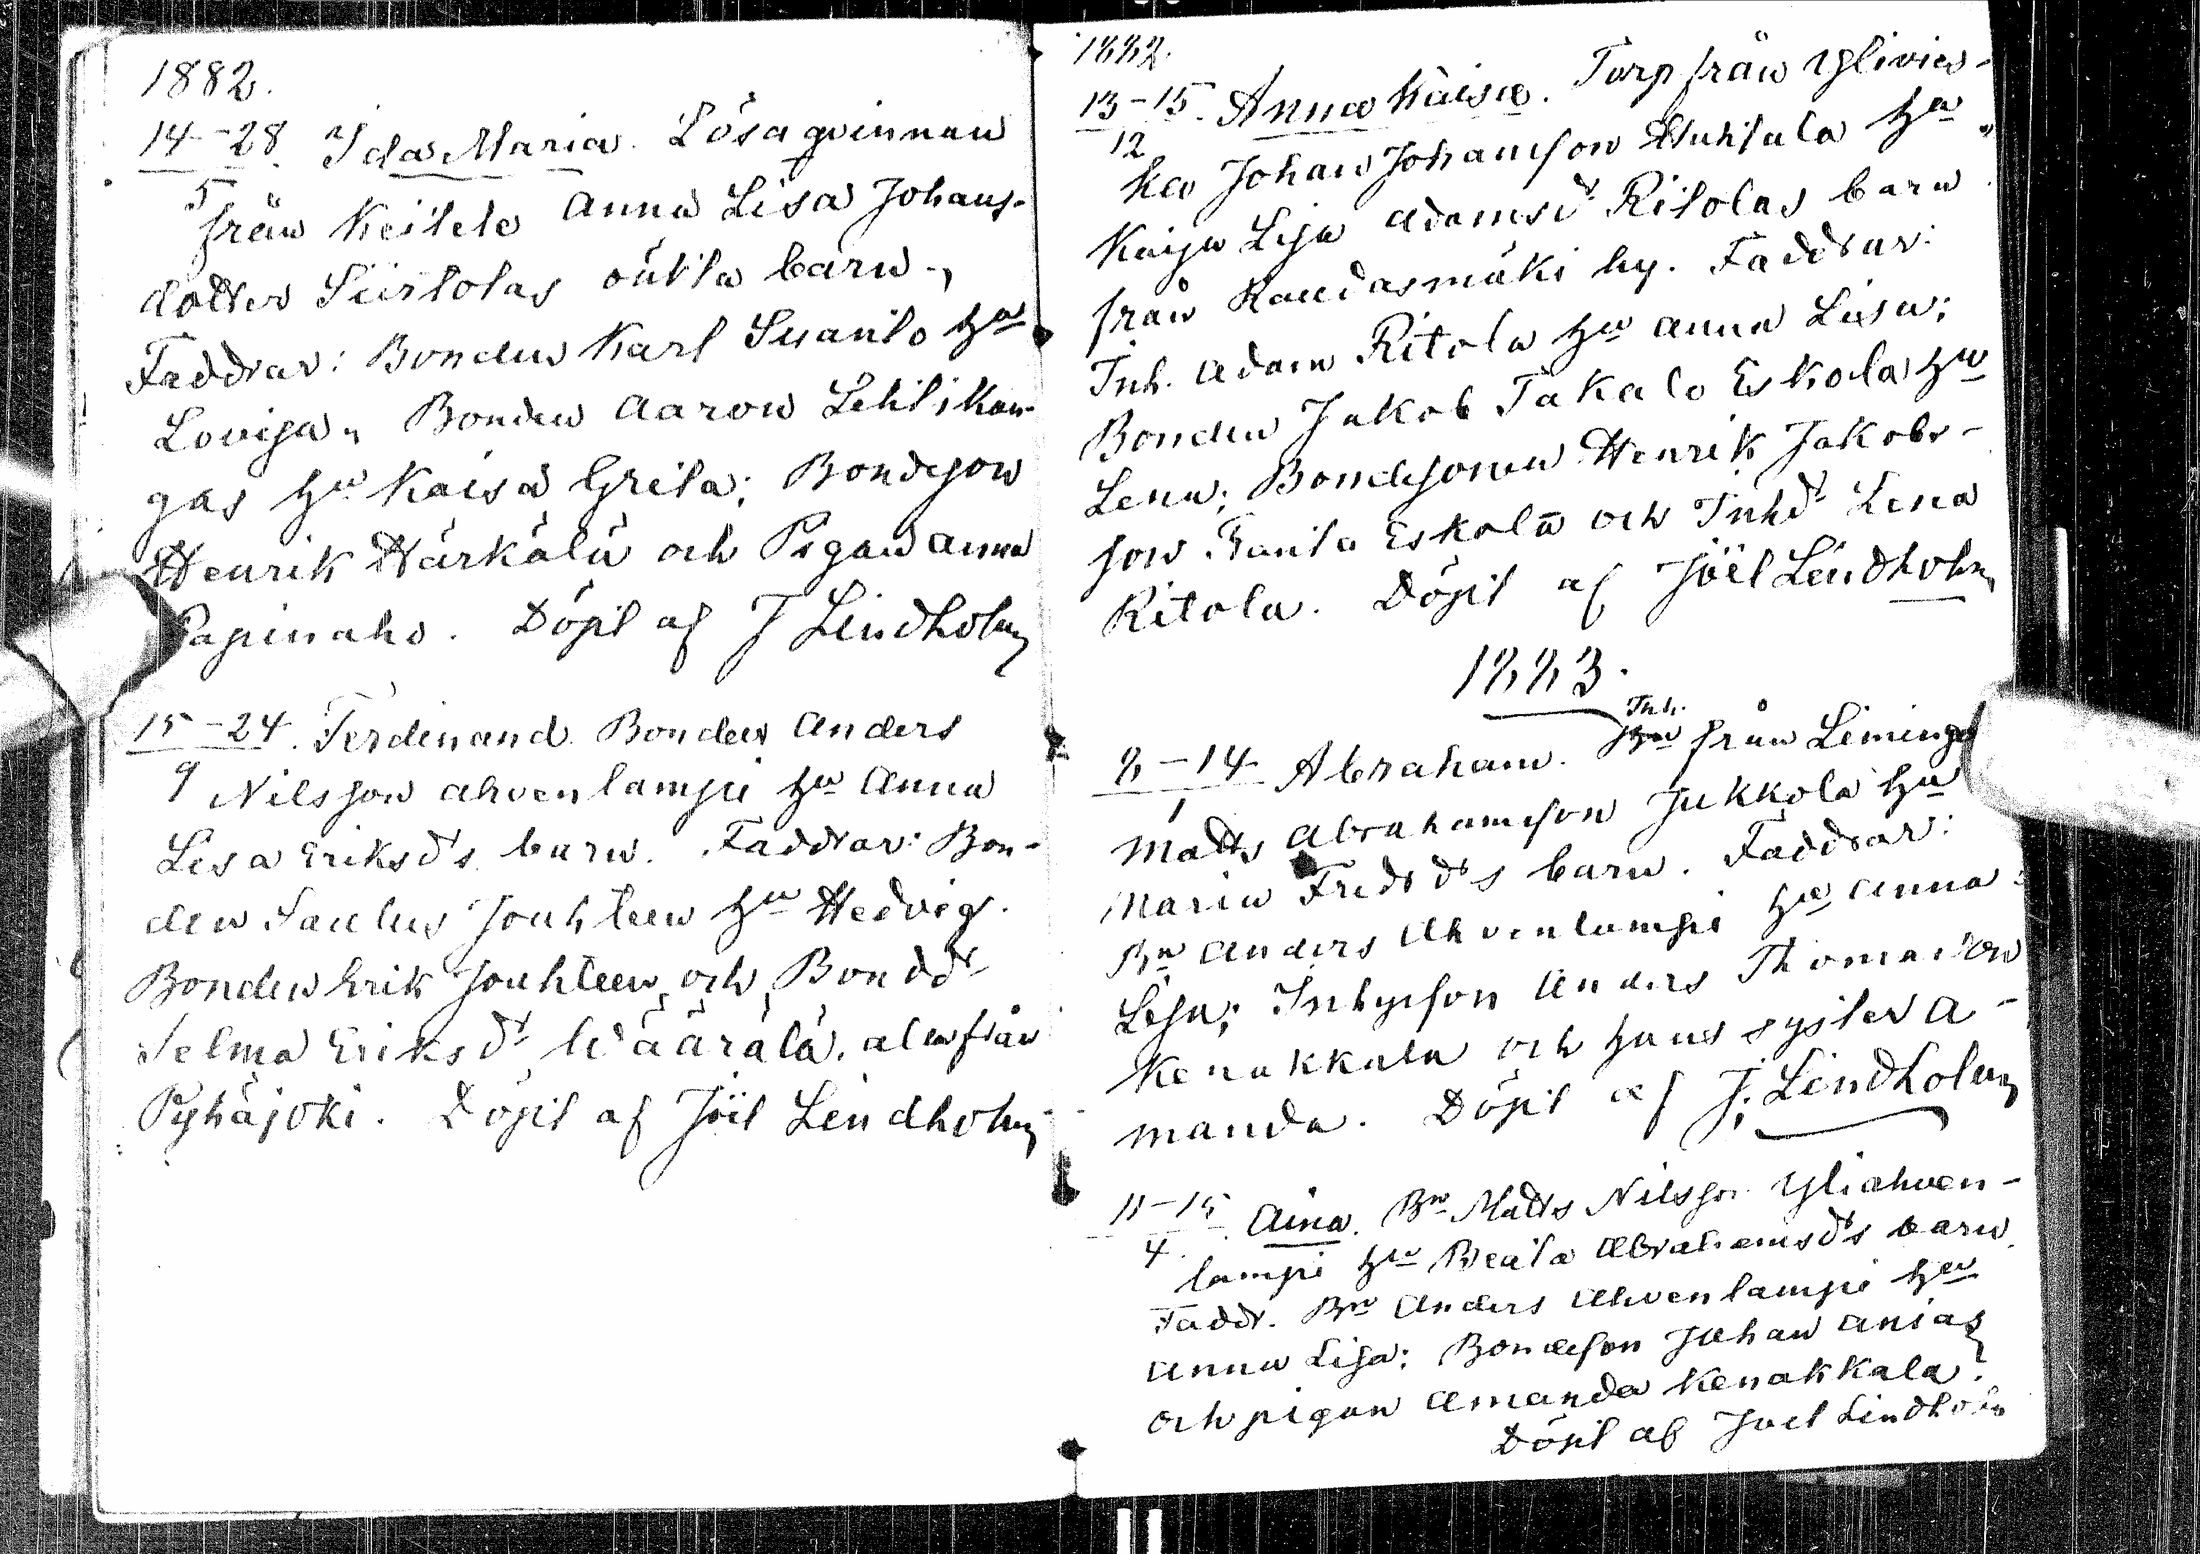 1882.
14-28 Ida Maria. Lösa qvinnan
5
från Keitele Anna Lisa Johans-
dotter Siirtolas oäkta barn.,
Faddrar: Bonden Karl Suanto hu
Lovisa, Bonden Aaron Lehtikan-
gas hu Kaisa Greta; Bondeson
Henrik Härkälä och Pigan Anna
Papinaho. Döpt af J Lindholm
15-24. Ferdinand. Bonden Anders
9
Nilsson Ahvenlampi hu Anna
Lisa Eriksds barn. Faddrar: Bon-
den Saulus Jouhteen hu Hedvig.
Bonden Erik Jouhteen och Bondd
Selma Eriksdr Wäärälä, alla från
Pyhäjoki. Döpt af Joel Lindholm
1882.
13-15. Anna Kaisa. Torp från Ylivies-
12
ka Johan Johansson Huhtala hu
Kaisa Lisa Adamsdr Ritolas barn
från Raudasmäki by. Faddrar:
Inh. Adam Ritola hu Anna Lisa;
Bonden Jakob Takalo Eskola hu
Lena; Bondesonen Henrik Jakobs-
son Eskola och Inhdr Lena
Ritola. Döpt af Joel Lindholm
1883.
Inh.
8-14 Abraham. från Liminga
1
Matts Abrahamsson Jukkola hu
Maria Fredrds barn. Faddrar:
Bn Anders Ahvenlampi hu Anna
Lisa; Inhyseson Anders Thomasson
Kenakkala och hans syster A-
manda. Döpt af J. Lindholm
11-15 Aina. Bn Matts Nilsson Yliahven-
4.
lampi hu Beata Abrahamsds barn.
Faddr. Bn Anders Ahvenlampi hu
Anna Lisa; Bondeson Johan Anias
och pigan Amanda Kenakkala.
Döpt af Joel Lindholm